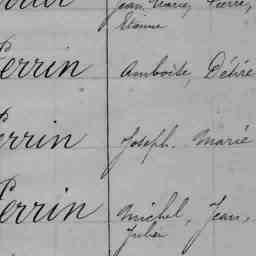 Jean Marie, Pierre,
Etienne
Perrin Amboise, Désiré
Perrin Joseph Marie
Perrin Michel, Jean,
Julien